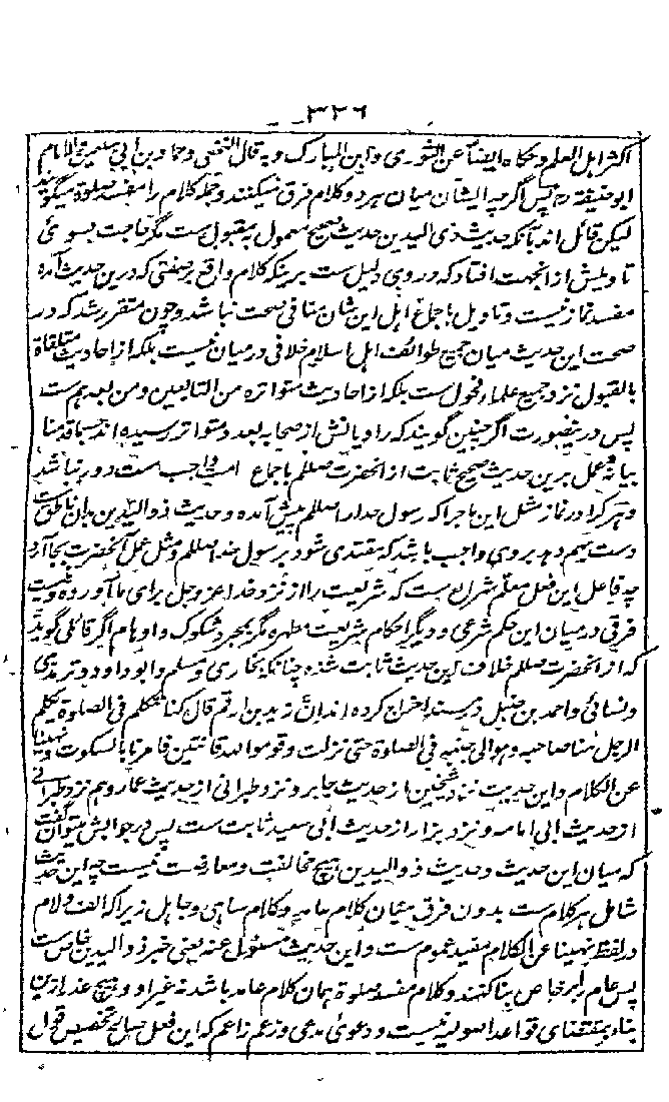 ۳۲۶
اکثر اہل العلم وحکاہ ایضاً عن الثوری وابن المبارک وبہ قال النخعی وحماد بن ابی سلیمٰن والامام
ابو حنیفة رح پس اگرچہ ایشان میان ہر دو کلام فرق نمیکنند وجملہ کلام را مفسد صلوة میگویند
لیکن قائل اند بآنکہ حدیث ذی الیدین حدیث صحیح معمول بہ مقبول ست مگر حاجت بسوئ
تاویلش ازانجہت افتاد کہ در وی دلیل ست برینکہ کلام واقع بر صفتی کہ درین حدیث آمدہ
مفسد نماز نیست وتاویل باجماع اہل این شان منافی صحت نباشد وچون متقرر شد کہ در
صحت این حدیث میان جمیع طوائف اہل اسلام خلافی درمیان نیست بلکہ از احادیث متلقاة
بالقبول نزد جمیع علماء فحول ست بلکہ از احادیث متواترہ من التابعین ومن بعدہم ست
پس درینصورت اگر چنین گویند کہ راویانش از صحابہ بعدد متواتر رسیدہ اند حسبما قدمنا
بیانہ عمل برین حدیث صحیح ثابت از آنحضرت صلعم باجماع امت واجب ست دور نباشد
وہر کرا در نماز مثل این ماجرا کہ رسول خدا را صلعم پیش آمدہ وحدیث ذو الیدین بدان ناطق ست
دست بہم دہد بروی واجب باشد کہ مقتدی شود برسول خدا صلعم ومثل عمل آنحضرت بجا آرد
چہ فاعل این فعل معلم شرائع ست کہ شریعت را از نزد خدا عز وجل برای ما آوردہ ونیست
فرقی درمیان این حکم شرعی ودیگر احکام شریعت مطہرہ مگر بمجرد شکوک واوہام اگر قائلی گوید
کہ از آنحضرت صلعم خلاف این حدیث ثابت شدہ چنانکہ بخاری ومسلم وابو داود وترمذی
ونسائی واحمد بن حنبل در مسند اخراج کردہ اند انّ زید بن ارقم قال کنا نتکلم فی الصلوة یکلم
الرجل منا صاحبہ وہو الی جنبہ فی الصلوة حتی نزلت وقوموا للہ قانتین فامرنا بالسکوت ونہینا
عن الکلام واین حدیث نزد شیخین از حدیث جابر ونزد طبرانی از حدیث عمار وہم نزد طبرانی
از حدیث ابی امامہ ونزد بزار از حدیث ابی سعید ثابت ست پس در جوابش میتوان گفت
کہ میان این حدیث وحدیث ذو الیدین ہیچ مخالفت ومعارضت نیست چہ این حدیث
شامل ہر کلام ست بدون فرق میان کلام عامد وکلام ساہی وجاہل زیرا کہ الف ولام
در لفظ نہینا عن الکلام مفید عموم ست واین حدیث مسئول عنہ یعنی خبر ذو الیدین خاص ست
پس عام را بر خاص بنا کنند وکلام مفسد صلوة ہمان کلام عامد باشد نہ غیر او وہیچ عذر ازین
بناء بمقتضای قواعد اصولیہ نیست ودعوئ مدعی وزعم زاعم کہ این فعل صالح تخصیص قول